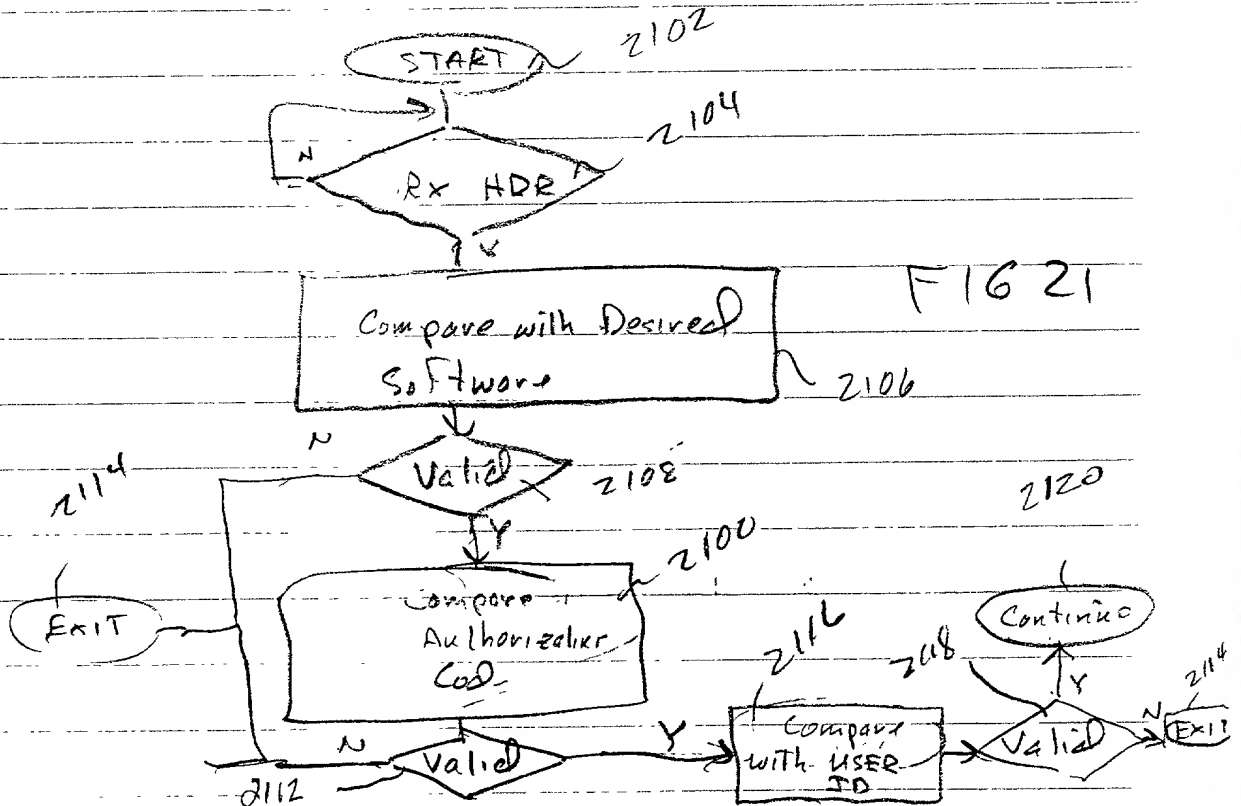 START
2102
N
2104
Rx HDR
Y
FIG 21
Compare with Desired
Software
2106
N
Valid
2108
2114
Y
2120
2100
EXIT
Compare
Authorization
Code
Continue
2116
2118
Y
2114
N
Valid
Y
Compare
with USER
ID
Valid
N
EXIT
2112